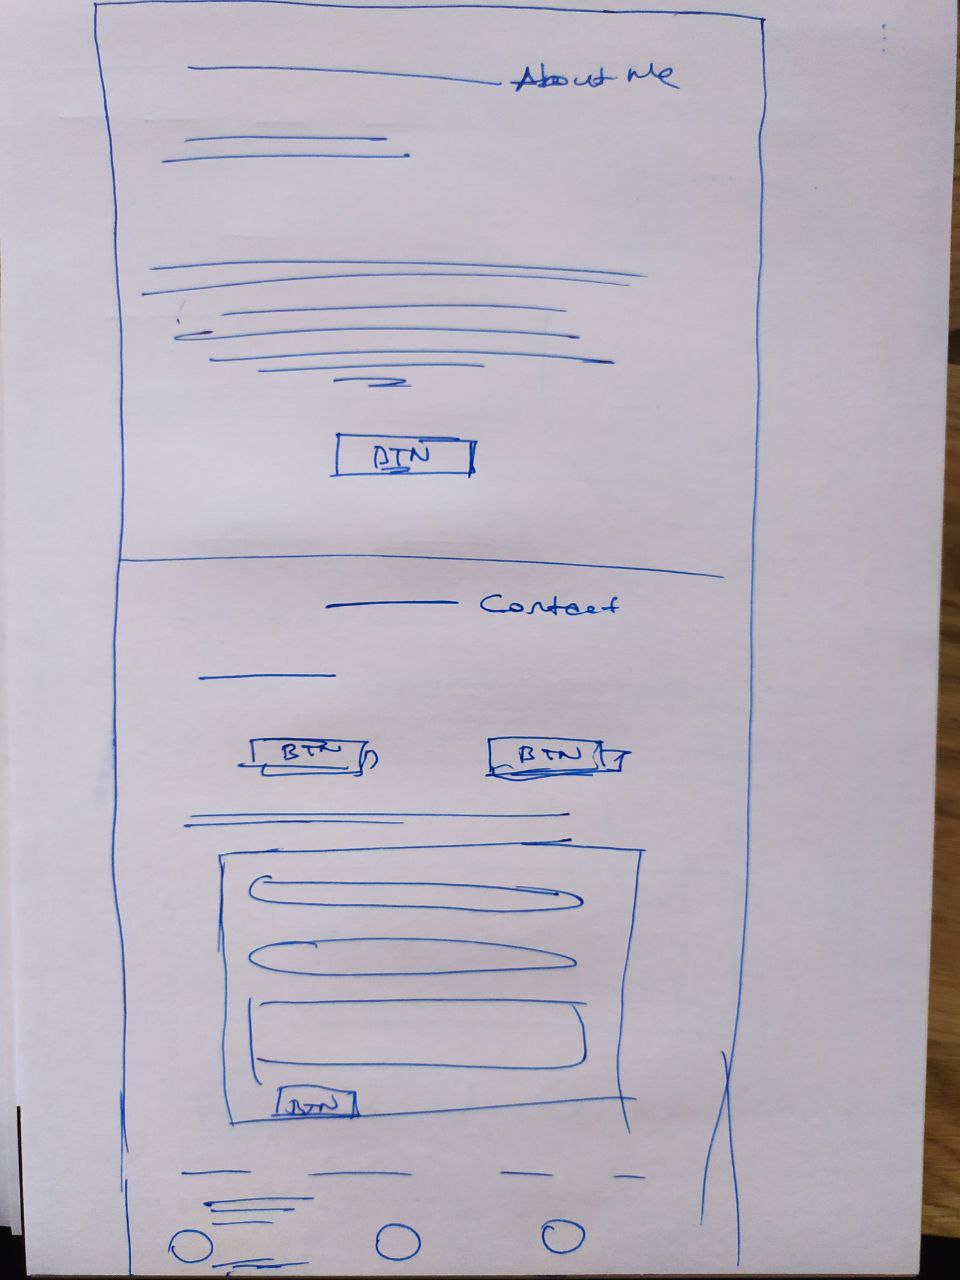 About Me
BTN
Contact
BTN BTN
BTN